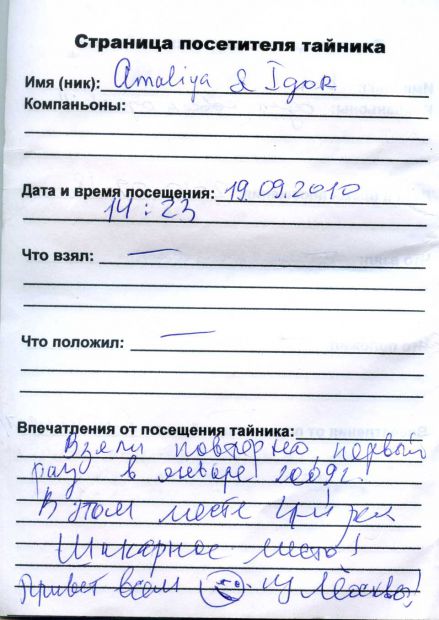 Страница посетителя тайника
Имя (ник): Amaliya & Igor
Компаньоны:
Дата и время посещения: 19.09.2010
14:23
Что взял: —
Что положил: —
Впечатления от посещения тайника:
Взяли повторно, первый
раз в январе 2009г.
В этом месте
Шикарное место!
Привет всем из Москвы!